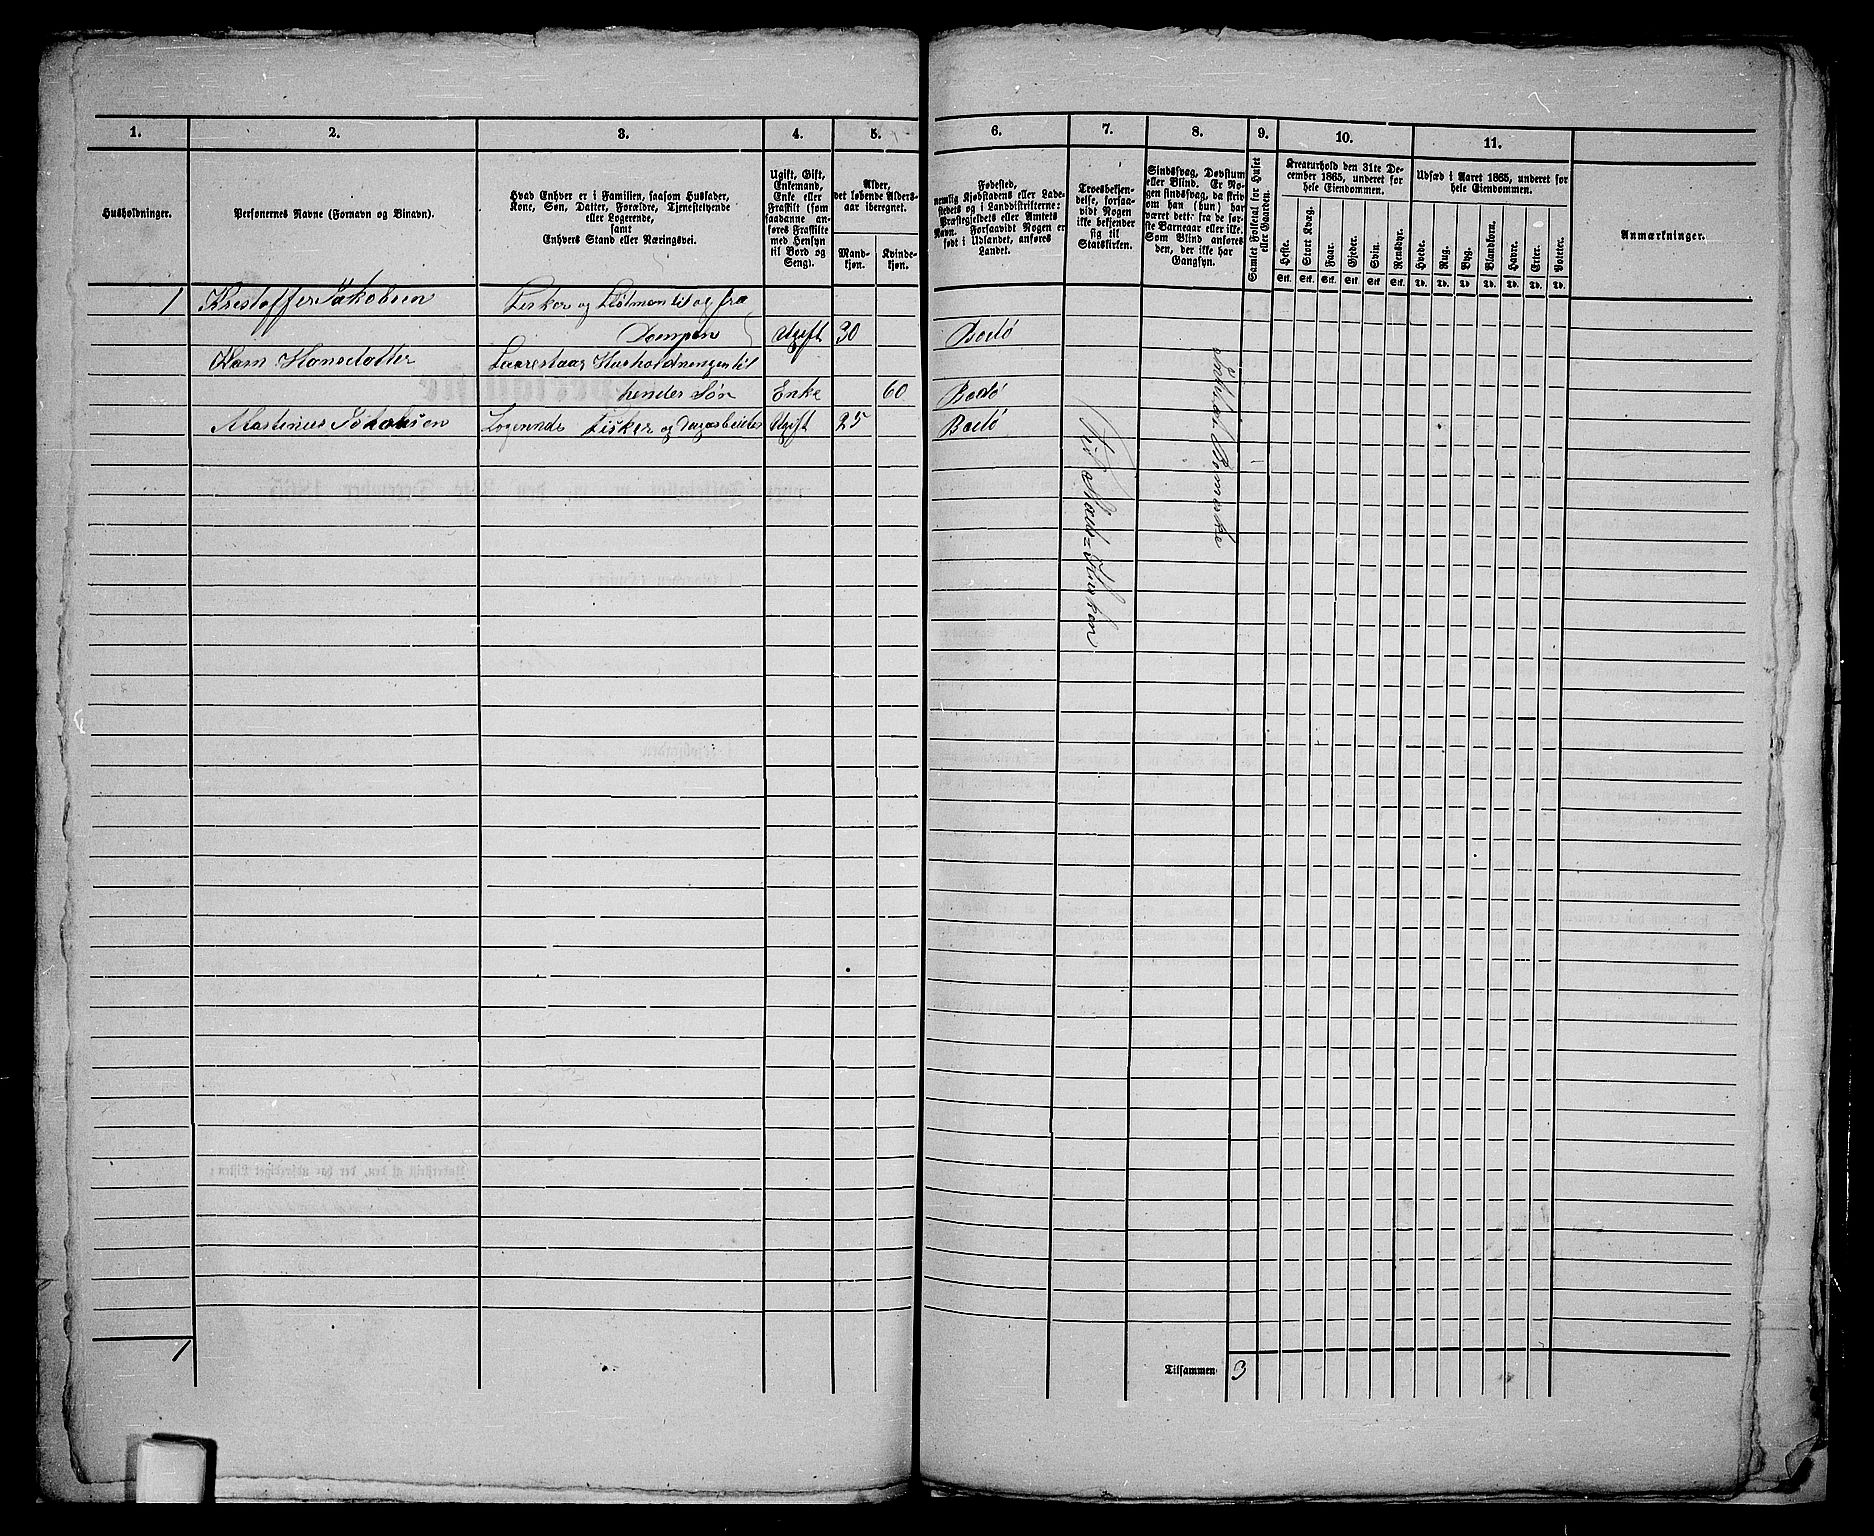 1. 2. 3. 4. 5. 6. 7. 8. 9. 10. 11.
Husholdninger.
Personernes Navne (Fornavn og Binavn).
Hvad Enhver er i Familien, saasom Husfader,
Kone, Søn, Datter, Forældre, Tjenestetyende
eller Logerende,
samt
Enhvers Stand eller Næringsvei.
Ugift, Gift,
Enkemand,
Enke eller
Fraskilt (som
saadanne an-
føres Fraskilte
med Hensyn
til Bord og
Seng).
Alder,
det løbende Alders-
aar iberegnet.
Mand-
kjøn.
Kvinde-
kjøn.
Fødested,
nemlig Kjøbstadens eller Lade-
stedets og i Landdistrikterne:
Præstegjeldets eller Amtets
Navn. Forsaavidt Nogen er
født i Udlandet, anføres
Landet.
Troesbekjen-
delse, forsaa-
vidt Nogen
ikke bekjender
sig til
Statskirken.
Sindssvag, Døvstum
eller Blind. Er No-
gen sindssvag, da skriv
om han (hun) har
været det fra de før-
ste Barneaar eller ikke.
Som Blind anføres
den, der ikke har
Gangsyn.
Samlet Folketal for Huset
eller Gaarden.
Kreaturhold den 31te De-
cember 1865, underet for
hele Eiendommen.
Heste. Stort Kvæg. Faar. Gjeder. Svin. Rensdyr.
Stk. Stk. Stk. Stk. Stk. Stk.
Udsæd i Aaret 1865, underet for
hele Eiendommen.
Hvede. Rug. Byg. Blandkorn. Havre. Erter. Poteter.
Td. Td. Td. Td. Td. Td. Td.
Anmærkninger.
1 Krestoffer Jakobsen Fisker og Flotman til og fra
Dampen Ugift 30 Bodö
Hansdatter Husholdningen til
hendes Søn Enke 60 Bodö
Martinus Jakobsen Logerende Fisker og Ugift 25 Bodö
Til Stads-Kirken
1
Tilsammen 3